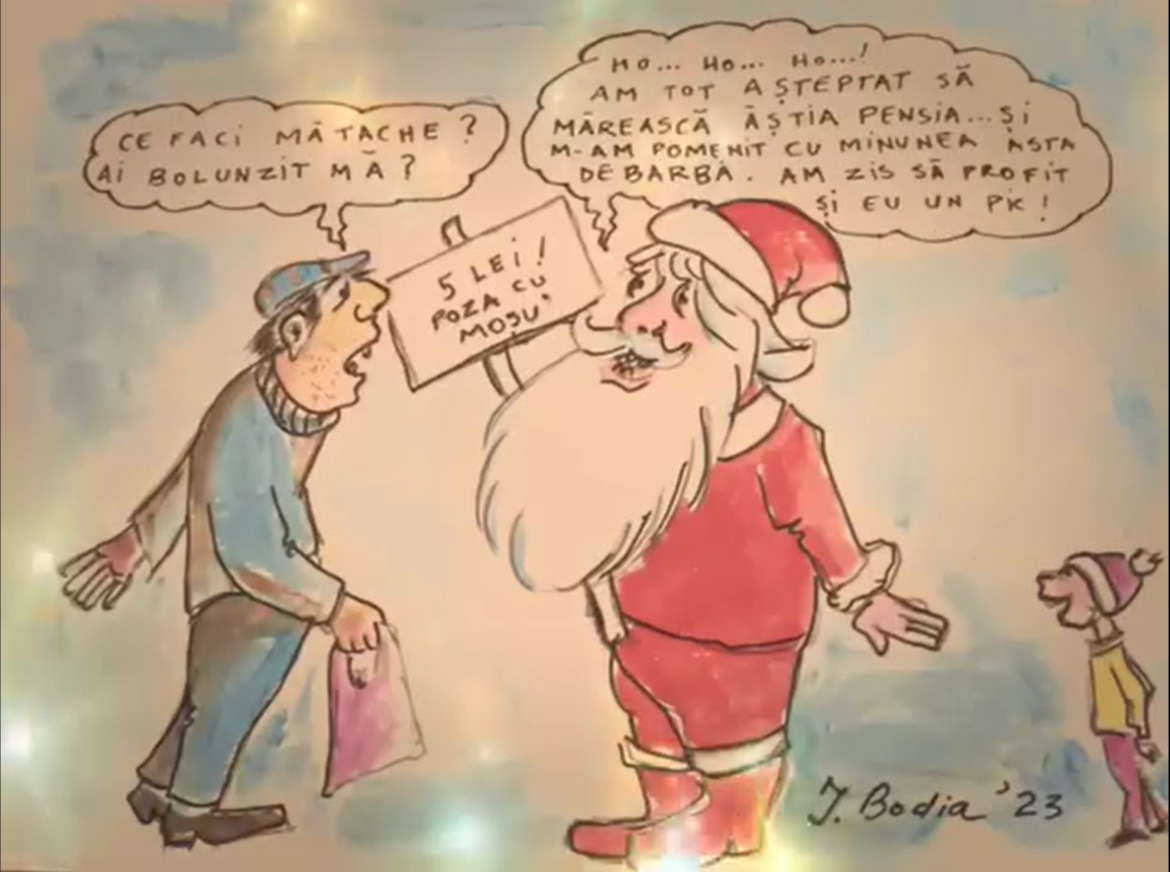 CE FACI MĂTACHE ?
AI BOLUNZIT MĂ ?
HO... HO... HO...!
AM TOT AȘTEPTAT SĂ
MĂREASCĂ ĂȘTIA PENSIA... ȘI
M-AM POMENIT CU MINUNEA ASTA
DE BARBĂ. AM ZIS SĂ PROFIT
ȘI EU UN PIC !
5 LEI !
POZA CU
MOȘU'
I. Bodia '23